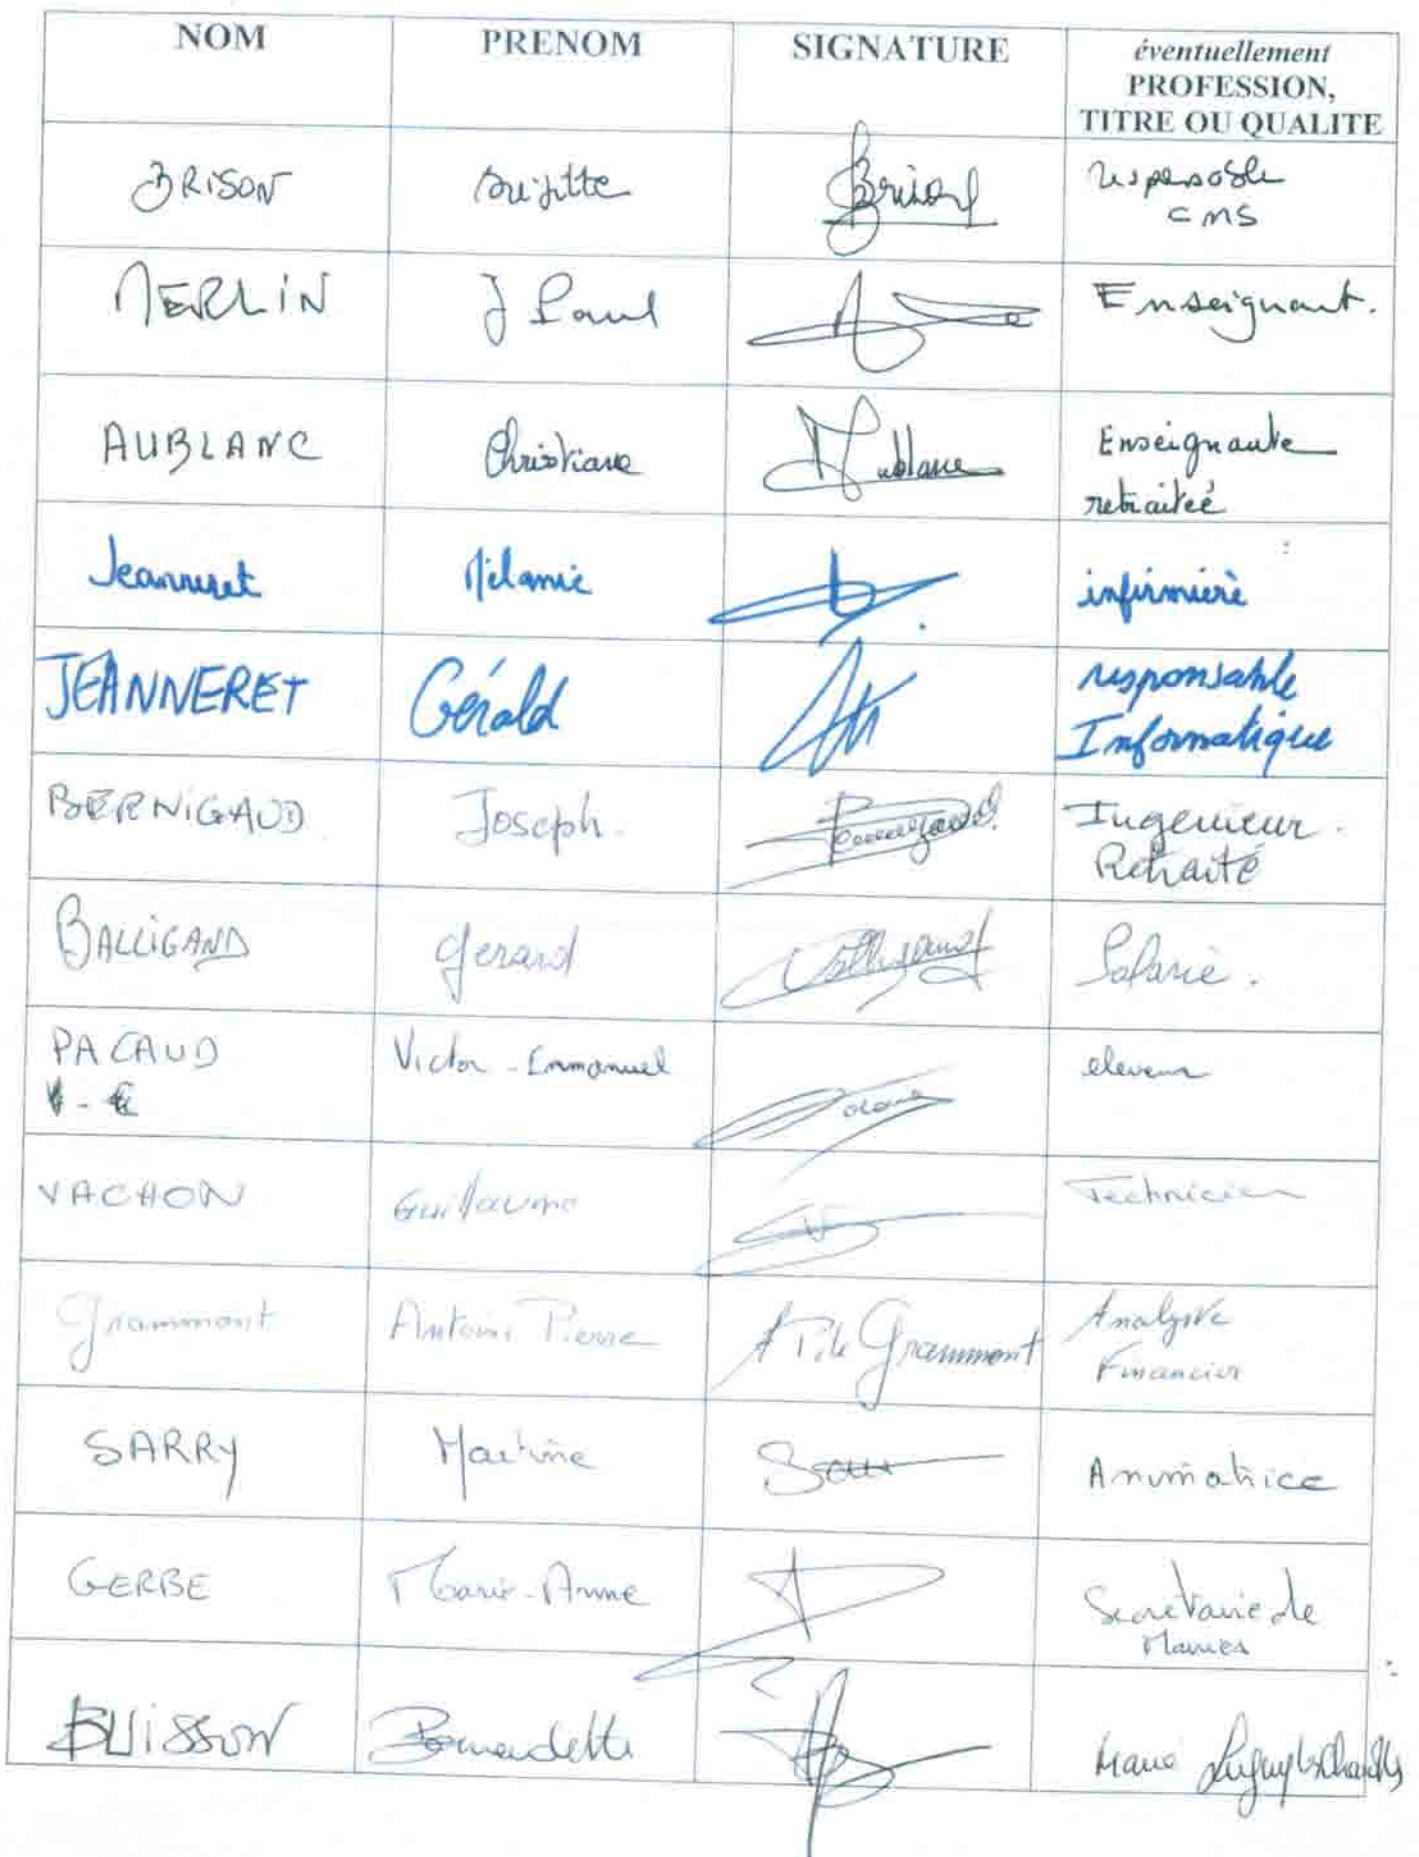 NOM PRENOM SIGNATURE éventuellement
PROFESSION,
TITRE OU QUALITE
BRISON Brigitte Brison responsable
CMS
MERLIN J Paul Enseignant.
AUBLANC Christiane Aublanc Enseignante
retraitée
Jeanneret Mélanie infirmière
JEANNERET Gérald responsable
Informatique
BERNIGAUD Joseph. Ingenieur.
Retraité
BALLIGAND Gerard Salarié.
PACAUD Victor-Emmanuel eleveur
V-E
VACHON Guillaume Technicien
Grammont Antoine Pierre A P de Grammont Analyste
Financier
SARRY Martine Animatrice
GERBE Marie-Anne Secretaire de
Mairies
BUISSON Bernadette Maire